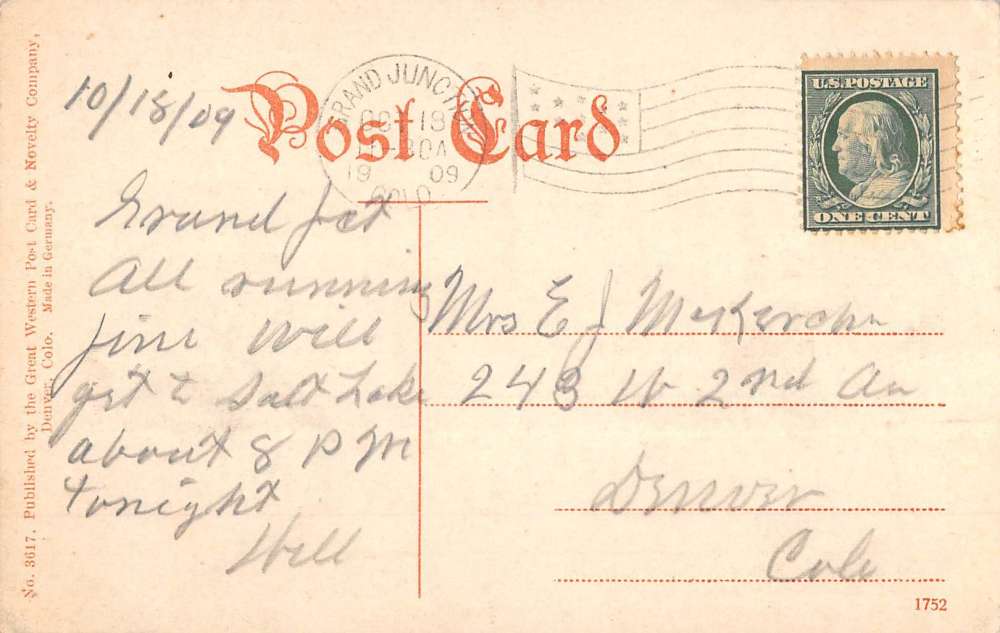 No. 3617. Published by the Great Western Post Card & Novelty Company,
Denver, Colo. Made in Germany.
10/18/09
Post Card
GRAND JUNCTION
OCT 18
30A
1909
COLO.
U.S. POSTAGE
ONE CENT
Grand Jct
All running
fine Will
get to Salt Lake
about 8 P M
tonight
Will
Mrs E J
243 W 2nd Av
Denver
Colo
1752